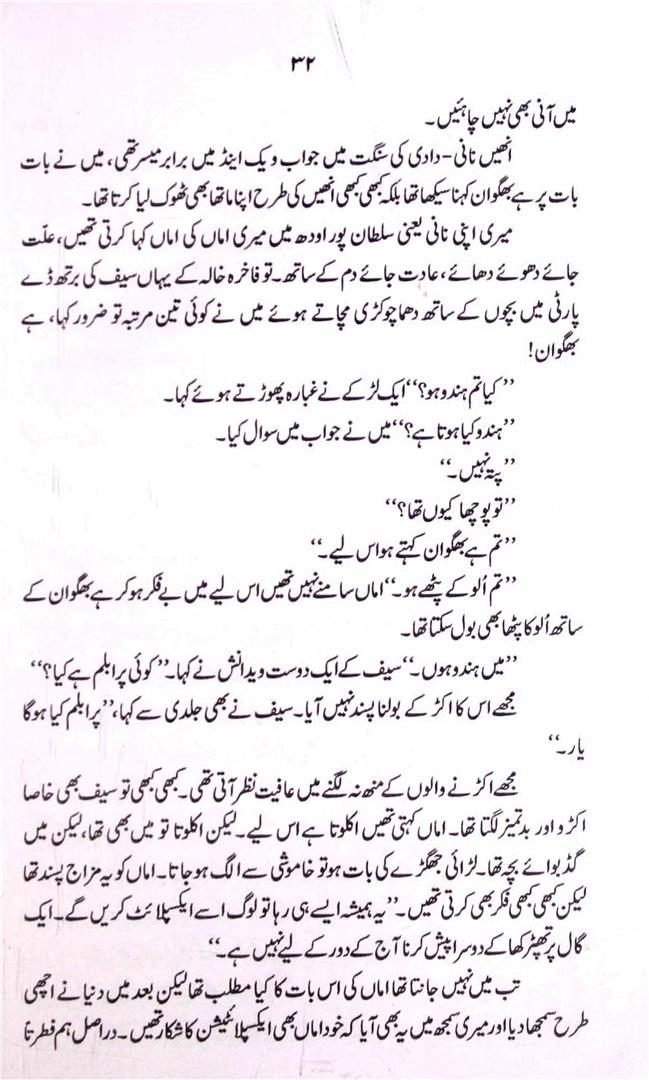 ۳۲
میں آنی بھی نہیں چاہئیں۔
انھیں نانی-دادی کی سنگت میں جو اب ویک اینڈ میں برابر میسر تھی، میں نے بات
بات پر ہے بھگوان کہنا سیکھا تھا بلکہ کبھی کبھی انھیں کی طرح اپنا ماتھا بھی ٹھوک لیا کرتا تھا۔
میری اپنی نانی یعنی سلطان پور اودھ میں میری اماں کی اماں کہا کرتی تھیں، علّت
جائے دھوئے دھائے، عادت جائے دم کے ساتھ۔ تو فاخرہ خالہ کے یہاں سیف کی برتھ ڈے
پارٹی میں بچوں کے ساتھ دھما چوکڑی مچاتے ہوئے میں نے کوئی تین مرتبہ تو ضرور کہا، ہے
بھگوان!
’’کیا تم ہندو ہو؟‘‘ ایک لڑکے نے غبارہ پھوڑتے ہوئے کہا۔
’’ہندو کیا ہوتا ہے؟‘‘ میں نے جواب میں سوال کیا۔
’’پتہ نہیں۔‘‘
’’تو پوچھا کیوں تھا؟‘‘
’’تم ہے بھگوان کہتے ہو اس لیے۔‘‘
’’تم اُلو کے پٹھے ہو۔‘‘ اماں سامنے نہیں تھیں اس لیے میں بے فکر ہو کر ہے بھگوان کے
ساتھ اُلو کا پٹھا بھی بول سکتا تھا۔
’’میں ہندو ہوں۔‘‘ سیف کے ایک دوست ویدانش نے کہا۔ ’’کوئی پرابلم ہے کیا؟‘‘
مجھے اس کا اکڑ کے بولنا پسند نہیں آیا۔ سیف نے بھی جلدی سے کہا، ’’پرابلم کیا ہوگا
یار۔‘‘
مجھے اکڑنے والوں کے منھ نہ لگنے میں عافیت نظر آتی تھی۔ کبھی کبھی تو سیف بھی خاصا
اکڑو اور بدتمیز لگتا تھا۔ اماں کہتی تھیں اکلوتا ہے اس لیے۔ لیکن اکلوتا تو میں بھی تھا، لیکن میں
گڈ بوائے بچہ تھا۔ لڑائی جھگڑے کی بات ہو تو خاموشی سے الگ ہو جاتا۔ اماں کو یہ مزاج پسند تھا
لیکن کبھی کبھی فکر بھی کرتی تھیں۔ ’’یہ ہمیشہ ایسے ہی رہا تو لوگ اسے ایکسپلائٹ کریں گے۔ ایک
گال پر تھپڑ کھا کے دوسرا پیش کرنا آج کے دور کے لیے نہیں ہے۔‘‘
تب میں نہیں جانتا تھا اماں کی اس بات کا کیا مطلب تھا لیکن بعد میں دنیا نے اچھی
طرح سمجھا دیا اور میری سمجھ میں یہ بھی آیا کہ خود اماں بھی ایکسپلائٹیشن کا شکار تھیں۔ دراصل ہم فطرتاً